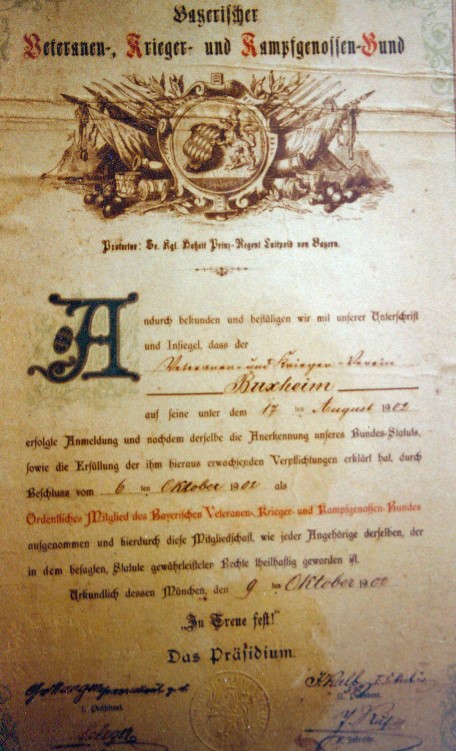 Bayerischer
Veteranen-, Krieger- und Kampfgenossen-Bund
Protector: Se. Kgl. Hoheit Prinz-Regent Luitpold von Bayern.
Andurch bekunden und bestätigen wir mit unserer Unterschrift
und Insiegel, dass der
Veteranen- und Krieger-Verein
Buxheim
auf seine unter dem 17 ten August 1902
erfolgte Anmeldung und nachdem derselbe die Anerkennung unseres Bundes-Statuts,
sowie die Erfüllung der ihm hieraus erwachsenden Verpflichtungen erklärt hat, durch
Beschluss vom 6 ten Oktober 1902 als
Ordentliches Mitglied des Bayerischen Veteranen-, Krieger- und Kampfgenossen-Bundes
aufgenommen und hierdurch diese Mitgliedschaft, wie jeder Angehörige derselben, der
in dem besagten, Statute gewährleisteten Rechte theilhaftig geworden ist.
Urkundlich dessen München, den 9 ten Oktober 1902
„In Treue fest!"
Das Präsidium.
I. Präsident.
II. Präsident.